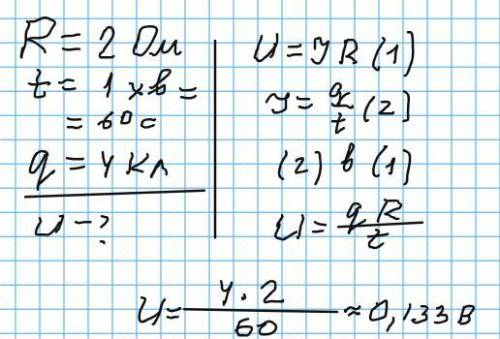 R = 2 Ом
t = 1 хв =
= 60 с
q = 4 Кл
U - ?
U = I R (1)
I = q/t (2)
(2) в (1)
U = q R / t
U = 4 · 2 / 60 ≈ 0,133 В